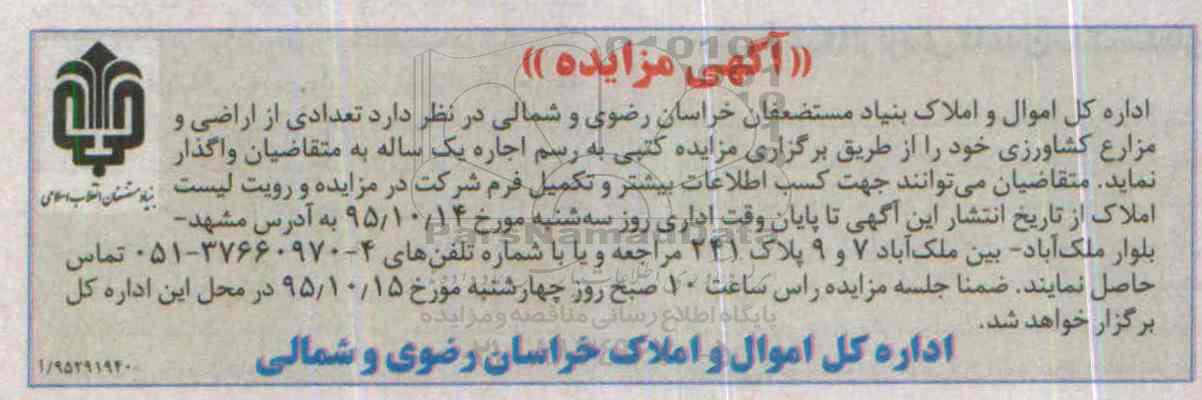 «آگهی مزایده»
اداره کل اموال و املاک بنیاد مستضعفان خراسان رضوی و شمالی در نظر دارد تعدادی از اراضی و
مزارع کشاورزی خود را از طریق برگزاری مزایده کتبی به رسم اجاره یک ساله به متقاضیان واگذار
نماید. متقاضیان می‌توانند جهت کسب اطلاعات بیشتر و تکمیل فرم شرکت در مزایده و رویت لیست
املاک از تاریخ انتشار این آگهی تا پایان وقت اداری روز سه‌شنبه مورخ ۹۵/۱۰/۱۴ به آدرس مشهد-
بلوار ملک‌آباد- بین ملک‌آباد ۷ و ۹ پلاک ۲۴۱ مراجعه و یا با شماره تلفن‌های ۴-۳۷۶۶۰۹۷۰-۰۵۱ تماس
حاصل نمایند. ضمنا جلسه مزایده راس ساعت ۱۰ صبح روز چهارشنبه مورخ ۹۵/۱۰/۱۵ در محل این اداره کل
برگزار خواهد شد.
اداره کل اموال و املاک خراسان رضوی و شمالی
بنیاد مستضعفان انقلاب اسلامی
۱/۹۵۲۹۱۹۴۰
ParsNamadData
پایگاه اطلاع رسانی مناقصه و مزایده